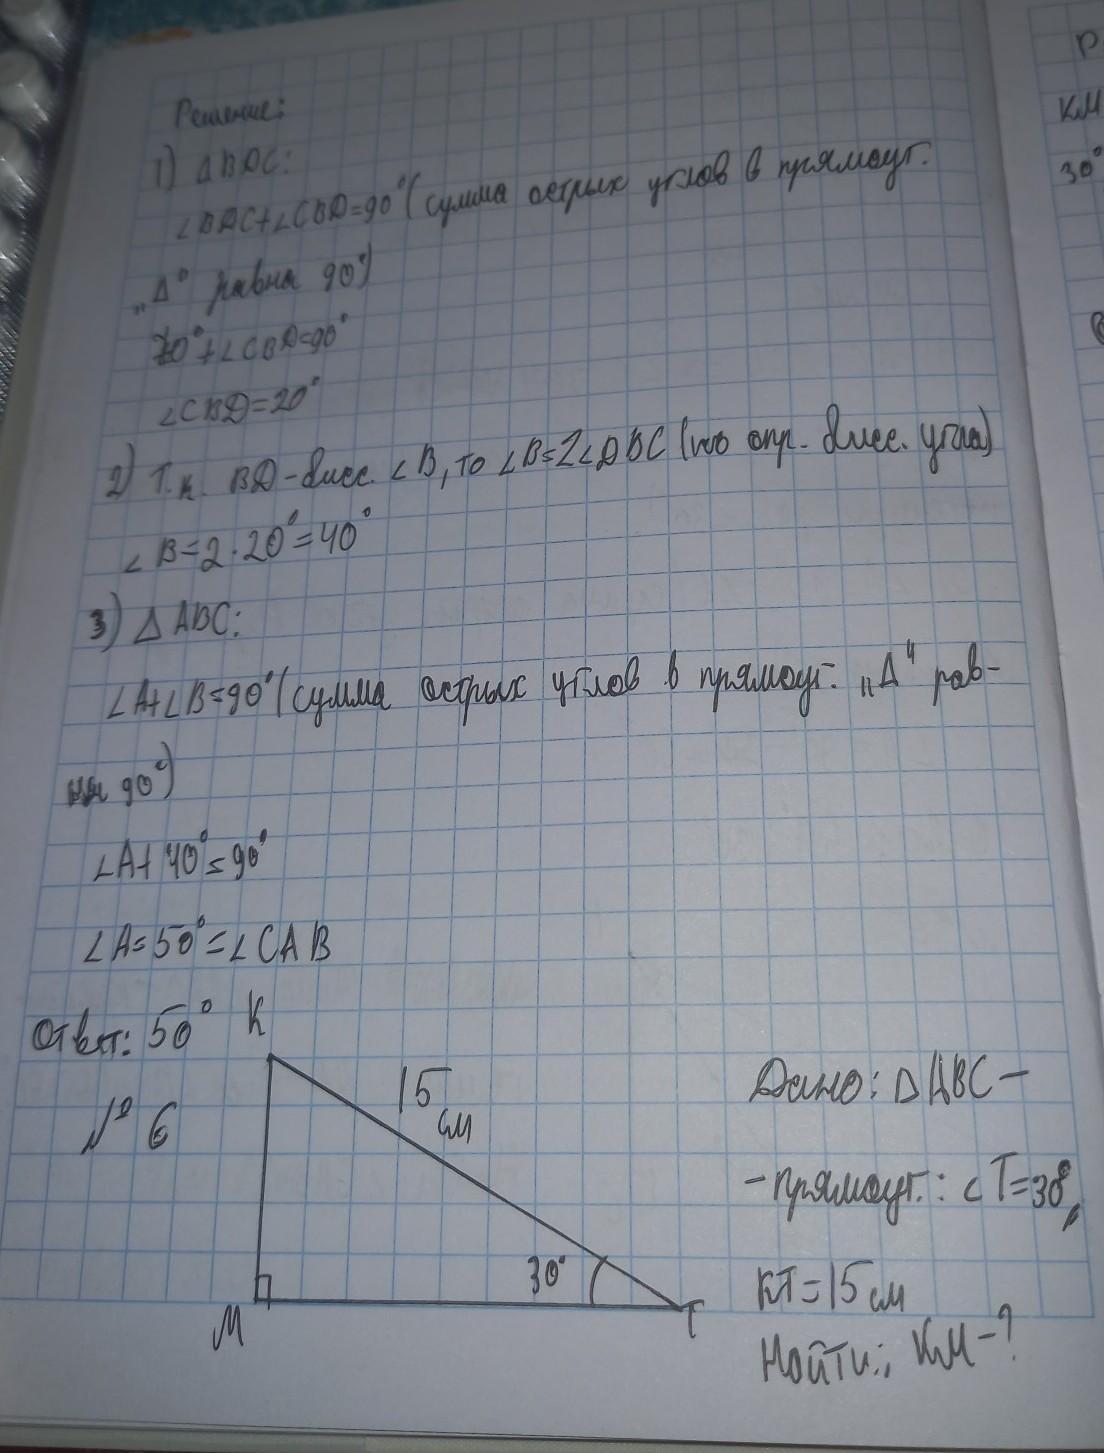 Решение:
1) ΔBDC:
∠BDC+∠CBD=90° (сумма острых углов в прямоуг.
„Δ" равна 90°)
70°+∠CBD=90°
∠CBD=20°
2) Т.к. BD-бисс. ∠B, то ∠B=2∠DBC (по опр. бисс. угла)
∠B=2·20°=40°
3) ΔABC:
∠A+∠B=90° (сумма острых углов в прямоуг. „Δ" рав-
на 90°)
∠A+40°=90°
∠A=50°=∠CAB
Ответ: 50°
№ 6
K
15
см
30°
M
T
Дано: ΔABC –
– прямоуг.: ∠T=30°,
KT=15 см
Найти: KM-?
P
KM
30°